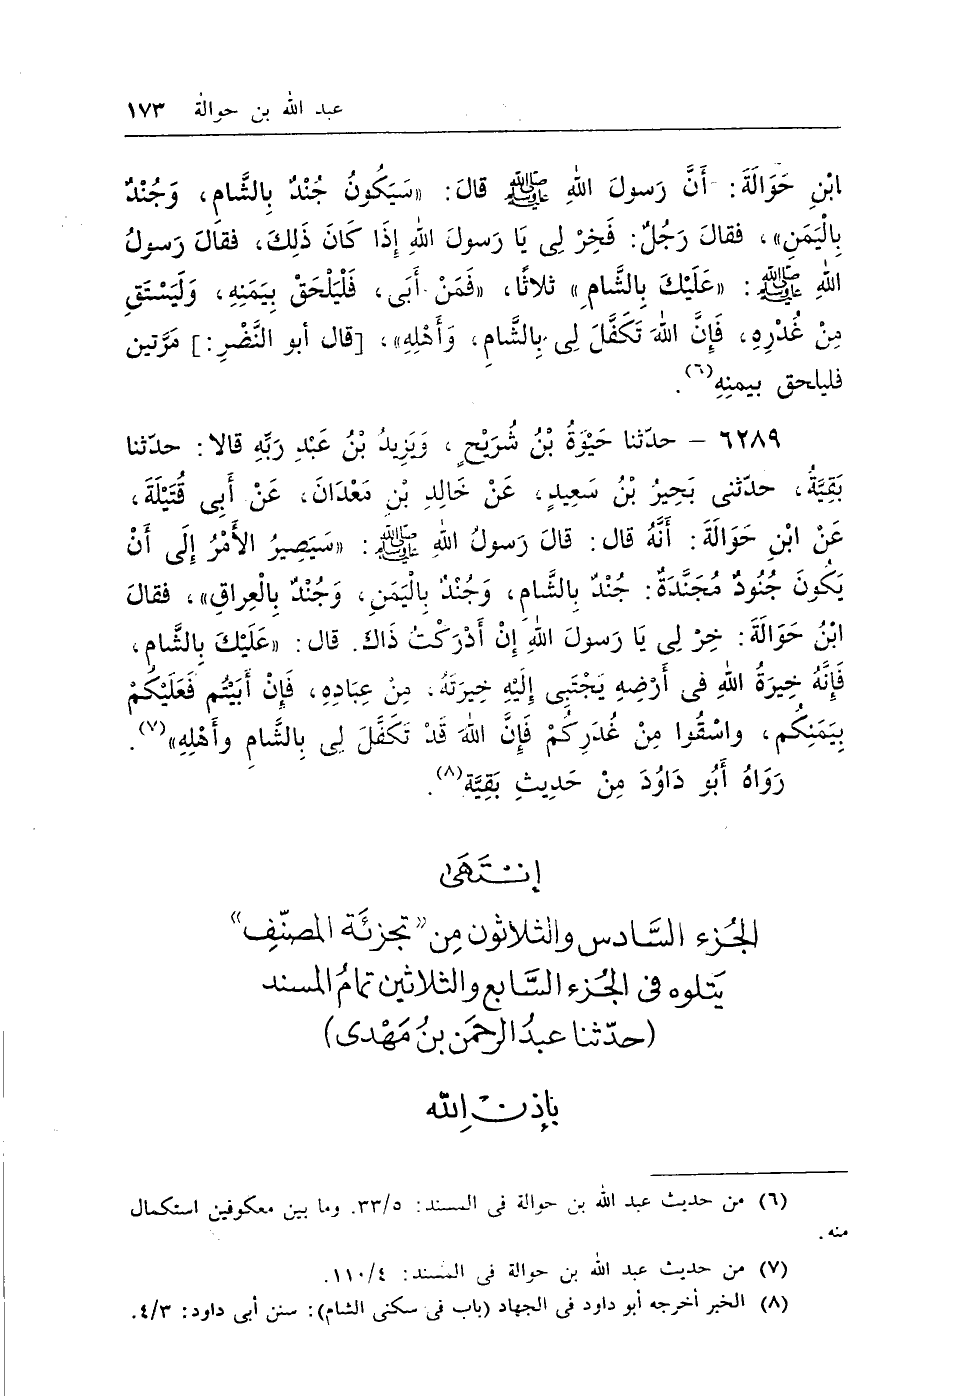 عبد الله بن حوالة ١٧٣
ابْنِ حَوَالَةَ: أَنَّ رَسولَ اللهِ ﷺ قالَ: «سَيَكُونُ جُنْدٌ بِالشَّامِ، وَجُنْدٌ
بِالْيَمَنِ»، فقالَ رَجُلٌ: فَخِرْ لِى يَا رَسولَ اللهِ إِذَا كَانَ ذَلِكَ، فقالَ رَسولُ
اللهِ ﷺ: «عَلَيْكَ بِالشَّامِ» ثلاثًا، «فَمَنْ أَبَى، فَلْيَلْحَقْ بِيَمَنِهِ، وَلْيَسْتَقِ
مِنْ غُدْرِهِ، فَإِنَّ اللهَ تَكَفَّلَ لِى بِالشَّامِ، وَأَهْلِهِ»، [قال أبو النَّضْرِ:] مَرَّتين
فليلحق بيمنِهِ(٦).
٦٢٨٩ - حدّثنا حَيْوَةُ بْنُ شُرَيْحٍ، وَيَزِيدُ بْنُ عَبْدِ رَبِّهِ قالا: حدّثنا
بَقِيَّةُ، حدّثنى بَحِيرُ بْنُ سَعِيدٍ، عَنْ خَالِدِ بْنِ مَعْدَانَ، عَنْ أَبِى قُتَيْلَةَ،
عَنْ ابْنِ حَوَالَةَ: أَنَّهُ قال: قالَ رَسولُ اللهِ ﷺ: «سَيَصِيرُ الأَمْرُ إِلَى أَنْ
يَكُونَ جُنُودٌ مُجَنَّدَةٌ: جُنْدٌ بِالشَّامِ، وَجُنْدٌ بِالْيَمَنِ، وَجُنْدٌ بِالْعِراقِ»، فقالَ
ابْنُ حَوَالَةَ: خِرْ لِى يَا رَسولَ اللهِ إِنْ أَدْرَكْتُ ذَاكَ. قال: «عَلَيْكَ بِالشَّامِ،
فَإِنَّهُ خِيرَةُ اللهِ فى أَرْضِهِ يَجْتَبِى إِلَيْهِ خِيرَتَهُ، مِنْ عِبَادِهِ، فَإِنْ أَبَيْتُم فَعَلَيْكُمْ
بِيَمَنِكُم، واسْقُوا مِنْ غُدَرِكُمْ فَإِنَّ اللهَ قَدْ تَكَفَّلَ لِى بِالشَّامِ وأَهْلِهِ»(٧).
رَوَاهُ أَبُو دَاوُدَ مِنْ حَدِيثِ بَقِيَّة(٨).
إنتَهَى
الجُزء السَّادس والثلاثون مِن "تجزئَة المصنّفِ"
يَتلوه فى الجُزء السَّابع والثلاثين تمامُ المسند
(حدّثنا عبدُ الرحمَن بنُ مَهْدى)
بإذن الله
(٦) من حديث عبد الله بن حوالة فى المسند: ٣٣/٥. وما بين معكوفين استكمال
منه.
(٧) من حديث عبد الله بن حوالة فى المسند: ١١٠/٤.
(٨) الخبر أخرجه أبو داود فى الجهاد (باب فى سكنى الشام): سنن أبى داود: ٤/٣.